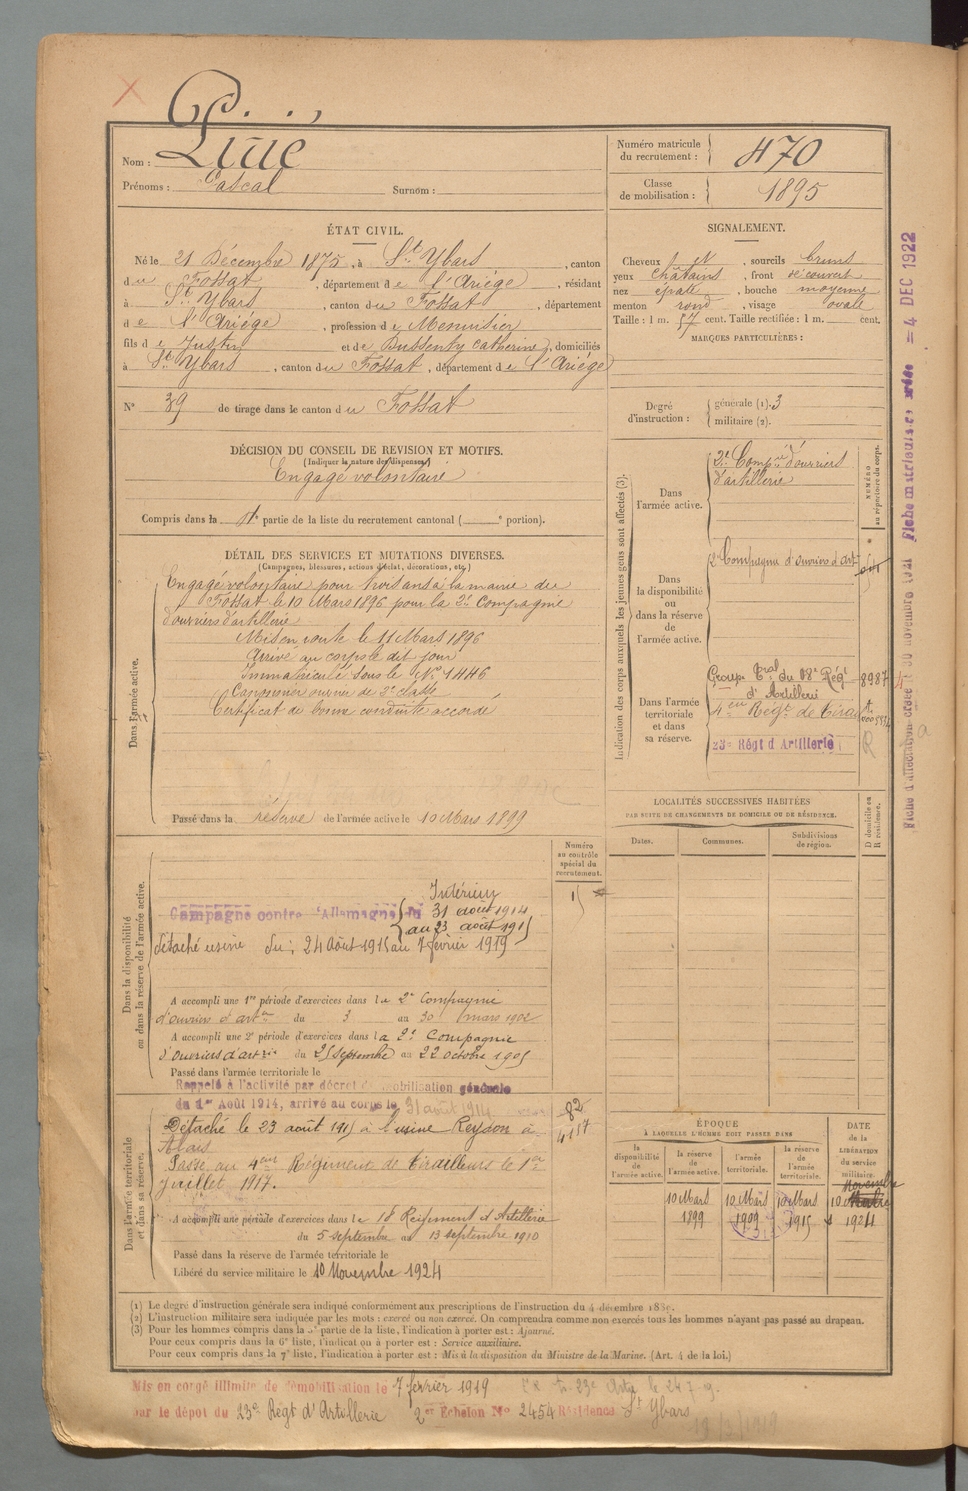 Nom :
Prénoms : Pascal Surnom :
Numéro matricule du recrutement : 470
Classe de mobilisation : 1895
ÉTAT CIVIL.
Né le 21 Décembre 1875, à St Ybars, canton
du Fossat, département de l'Ariége, résidant
à St Ybars, canton du Fossat, département
de l'Ariége, profession de Menuisier
fils de Justin et de Catherine, domiciliés
à St Ybars, canton du Fossat, département de l'Ariége
N° 39 de tirage dans le canton du Fossat
SIGNALEMENT.
Cheveux et, sourcils bruns
yeux châtains, front découvert
nez épaté, bouche moyenne
menton rond, visage ovale
Taille : 1 m. 57 cent. Taille rectifiée : 1 m. cent.
MARQUES PARTICULIÈRES :
Degré d'instruction : générale (1). 3
militaire (2).
DÉCISION DU CONSEIL DE REVISION ET MOTIFS.
(Indiquer la nature des dispenses)
Engagé volontaire
Compris dans la partie de la liste du recrutement cantonal ( e portion).
DÉTAIL DES SERVICES ET MUTATIONS DIVERSES.
(Campagnes, blessures, actions d'éclat, décorations, etc.)
Dans l'armée active.
Engagé volontaire pour trois ans à la mairie du
Fossat le 10 Mars 1896 pour la 2e Compagnie
d'ouvriers d'artillerie
Mis en route le 11 Mars 1896
Arrivé au corps le dit jour
Immatriculé sous le N° 1446
Canonnier ouvrier de 2e classe
Certificat de bonne conduite accordé
Passé dans la réserve de l'armée active le 10 Mars 1899
Indication des corps auxquels les jeunes gens sont affectés (3).
NUMÉRO au répertoire du corps.
Dans l'armée active.
2e Compie d'ouvriers
d'artillerie
Dans la disponibilité ou dans la réserve de l'armée active.
2e Compagnie d'ouvriers d'art
Dans l'armée territoriale et dans sa réserve.
Groupe du 18e Régt 8987
d'Artillerie
4eme Régt de Tirail
23e Régt d'Artillerie R
LOCALITÉS SUCCESSIVES HABITÉES
PAR SUITE DE CHANGEMENTS DE DOMICILE OU DE RÉSIDENCE.
Dates. Communes. Subdivisions de région. D domicile ou R résidence.
Dans la disponibilité ou dans la réserve de l'armée active.
Numéro au contrôle spécial du recrutement.
Intérieur
Campagne contre l'Allemagne du 31 août 1914
au 23 août 1915
détaché usine du : 24 août 1915 au 7 février 1919
A accompli une 1re période d'exercices dans la 2e Compagnie
d'ouvriers d'artie du 3 au 30 mars 1902
A accompli une 2e période d'exercices dans la 2e Compagnie
d'Ouvriers d'artrie du 25 septembre au 22 octobre 1905
Passé dans l'armée territoriale le
Rappelé à l'activité par décret de mobilisation générale
du 1er Août 1914, arrivé au corps le 31 août 1914
Dans l'armée territoriale et dans sa réserve.
82
4157
Détaché le 23 août 1915 à l'usine à
Alais
Passé au 4eme Régiment de Tirailleurs le 1er
juillet 1917.
A accompli une période d'exercices dans le 18 Régiment d'Artillerie
du 5 septembre au 13 septembre 1910
Passé dans la réserve de l'armée territoriale le
Libéré du service militaire le 10 Novembre 1924
ÉPOQUE
À LAQUELLE L'HOMME DOIT PASSER DANS
la disponibilité de l'armée active. la réserve de l'armée active. l'armée territoriale. la réserve de l'armée territoriale. DATE de la LIBÉRATION du service militaire.
Novembre
10 Mars 10 Mars 10 Mars 10
1899 1909 1915 1924
(1) Le degré d'instruction générale sera indiqué conformément aux prescriptions de l'instruction du 4 décembre
(2) L'instruction militaire sera indiquée par les mots : exercé ou non exercé. On comprendra comme non exercés tous les hommes n'ayant pas passé au drapeau.
(3) Pour les hommes compris dans la 5e partie de la liste, l'indication à porter est : Ajourné.
Pour ceux compris dans la 6e liste, l'indication à porter est : Service auxiliaire.
Pour ceux compris dans la 7e liste, l'indication à porter est : Mis à la disposition du Ministre de la Marine. (Art. 4 de la loi.)
Mis en congé illimité de démobilisation le 7 février 1919
par le dépôt du 23e Régt d'Artillerie 2e Echelon N° 2454 Résidence St Ybars
= 4 DEC 1922